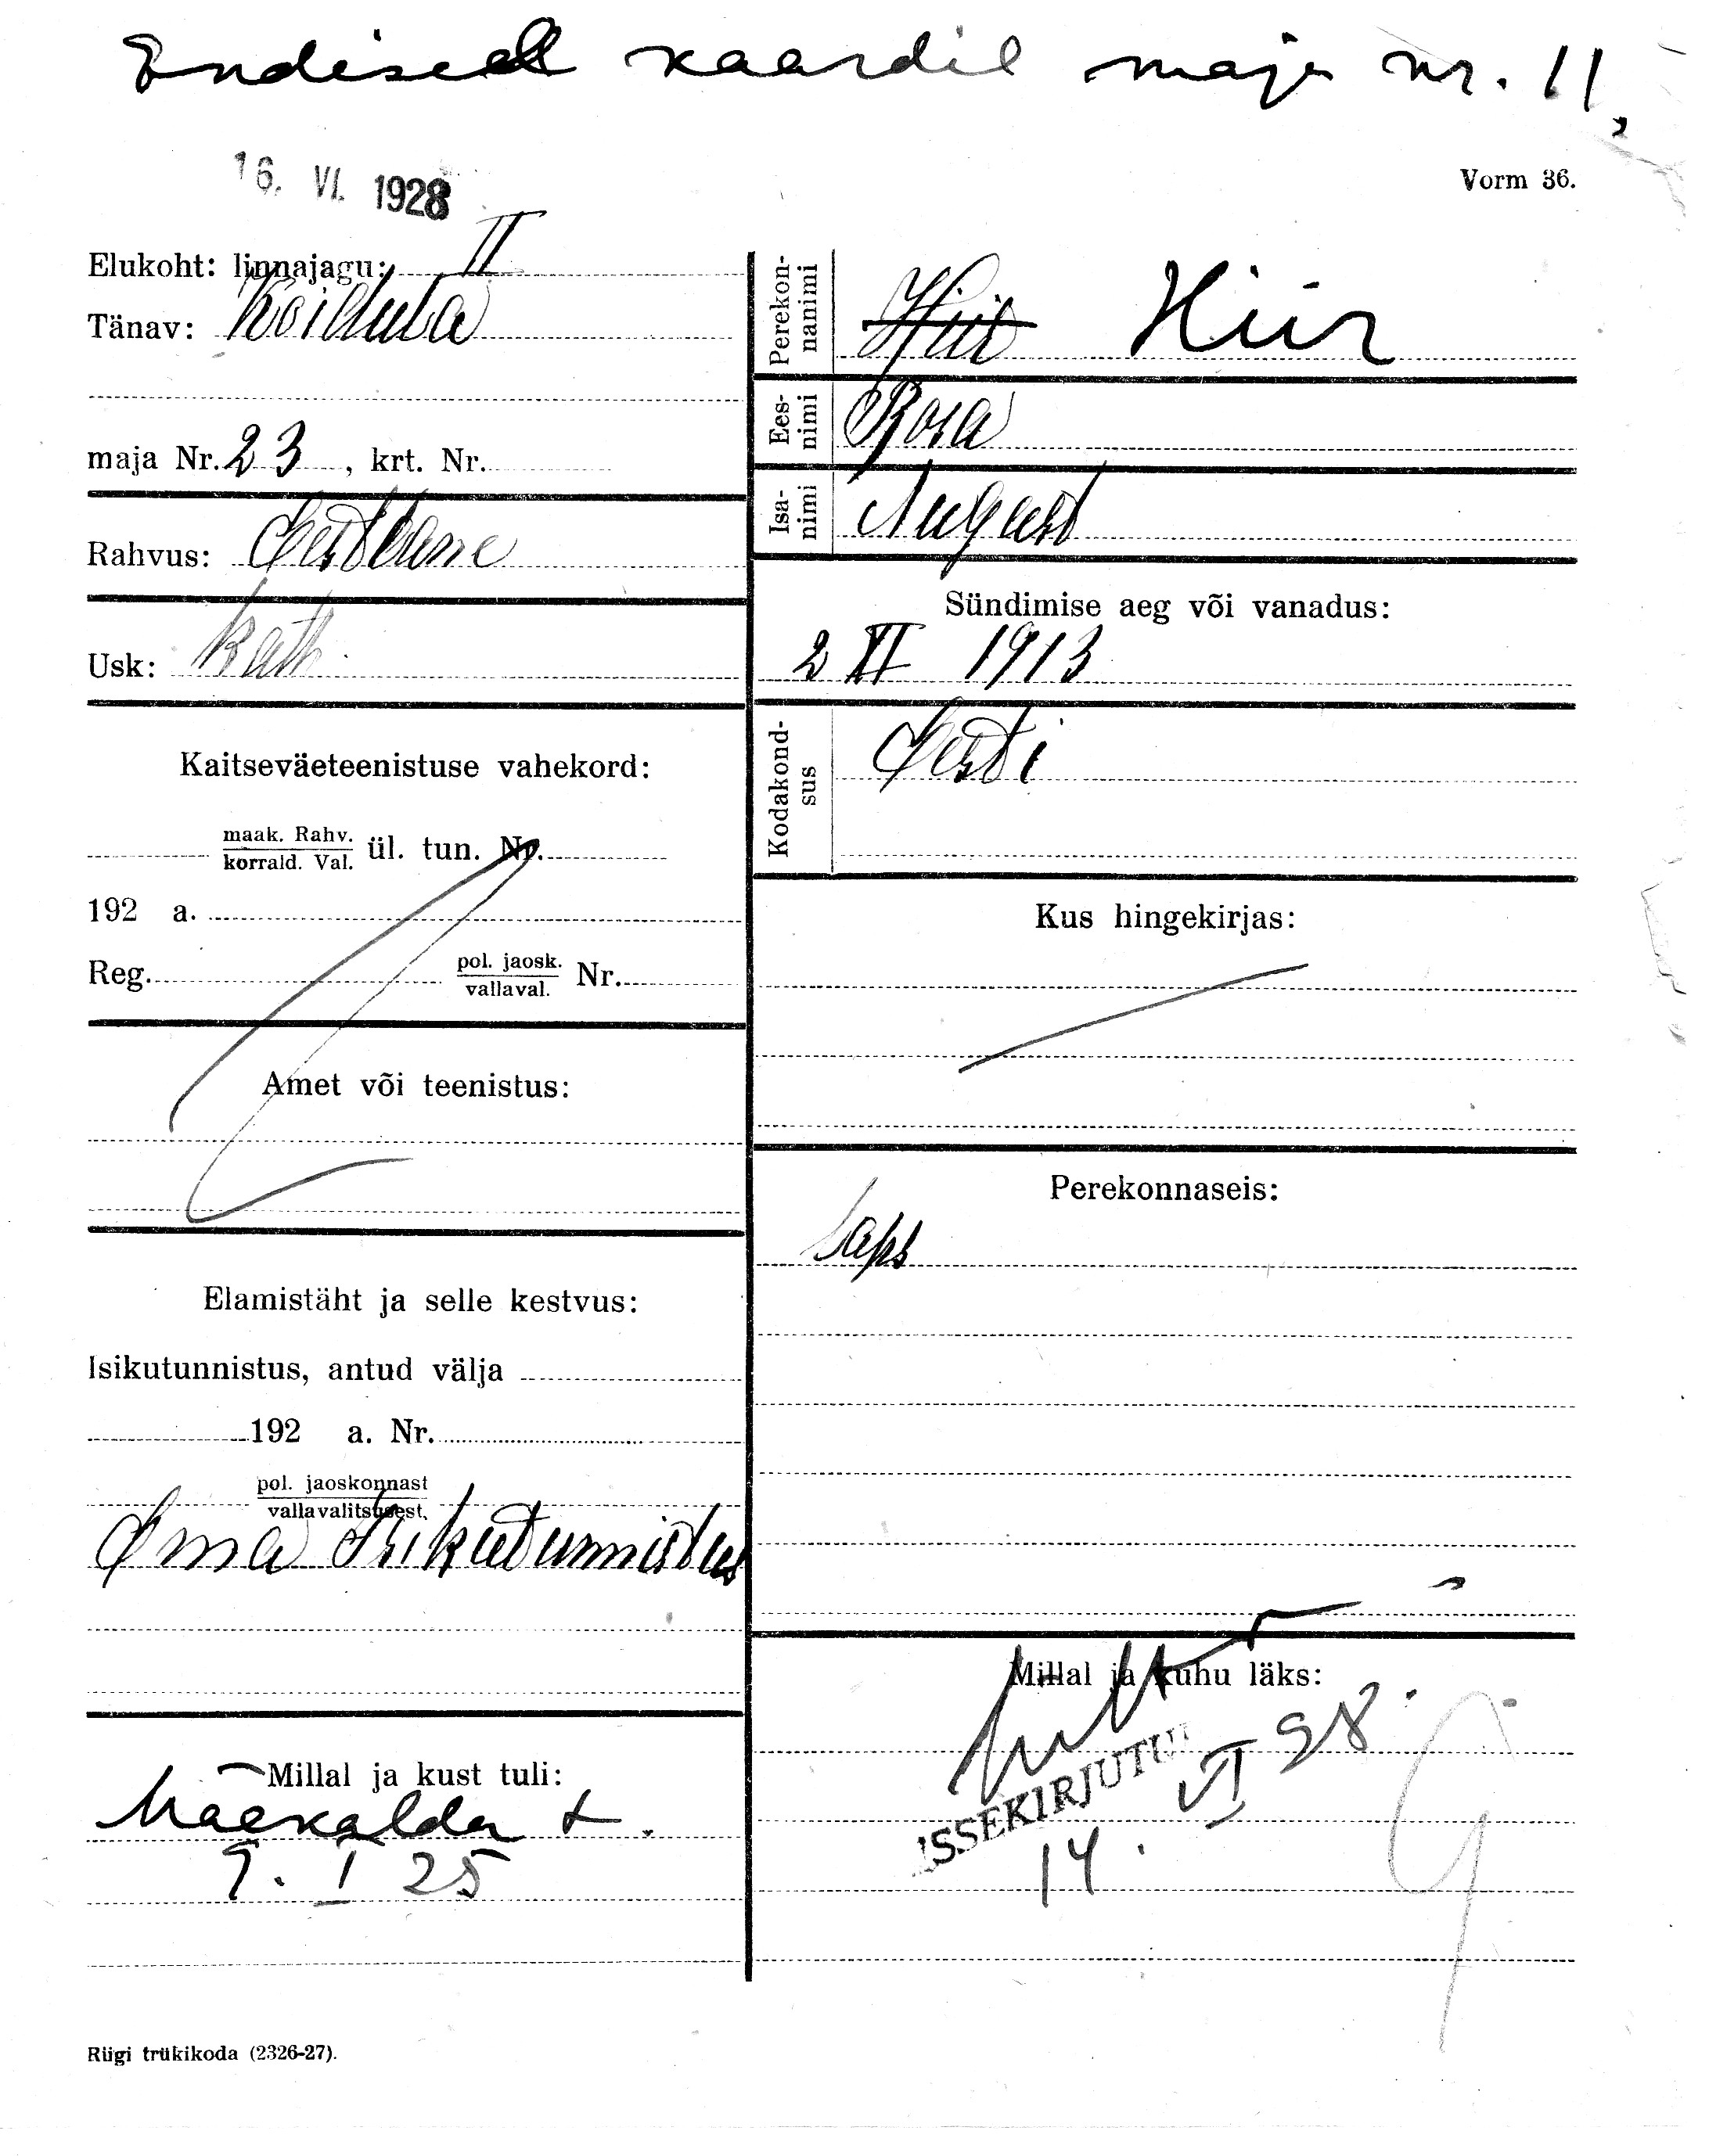 Endisel kaardil maja nr. 11,
16. VI. 1928
Vorm 36.
Elukoht: linnajagu: II
Tänav: Koidula
maja Nr. 23, krt. Nr.
Rahvus: Eestlane
Usk: Kath.
Kaitseväeteenistuse vahekord:
maak. Rahv.
korrald. Val. ül. tun. Nr.
192 a.
Reg. pol. jaosk.
vallaval. Nr.
Amet või teenistus:
Elamistäht ja selle kestvus:
Isikutunnistus, antud välja
192 a. Nr.
pol. jaoskonnast
vallavalitsusest.
Ema Isikutunnistus
Millal ja kust tuli:
Mäekalda t.
9. I 25
Perekon-
nanimi
Hiir
Ees-
nimi
Rosa
Isa-
nimi
August
Sündimise aeg või vanadus:
2 XI 1913
Kodakond-
sus
Eesti
Kus hingekirjas:
Perekonnaseis:
Laps
Millal ja kuhu läks:
SISSEKIRJUTUD
14. VI 28.
Riigi trükikoda (2326-27).